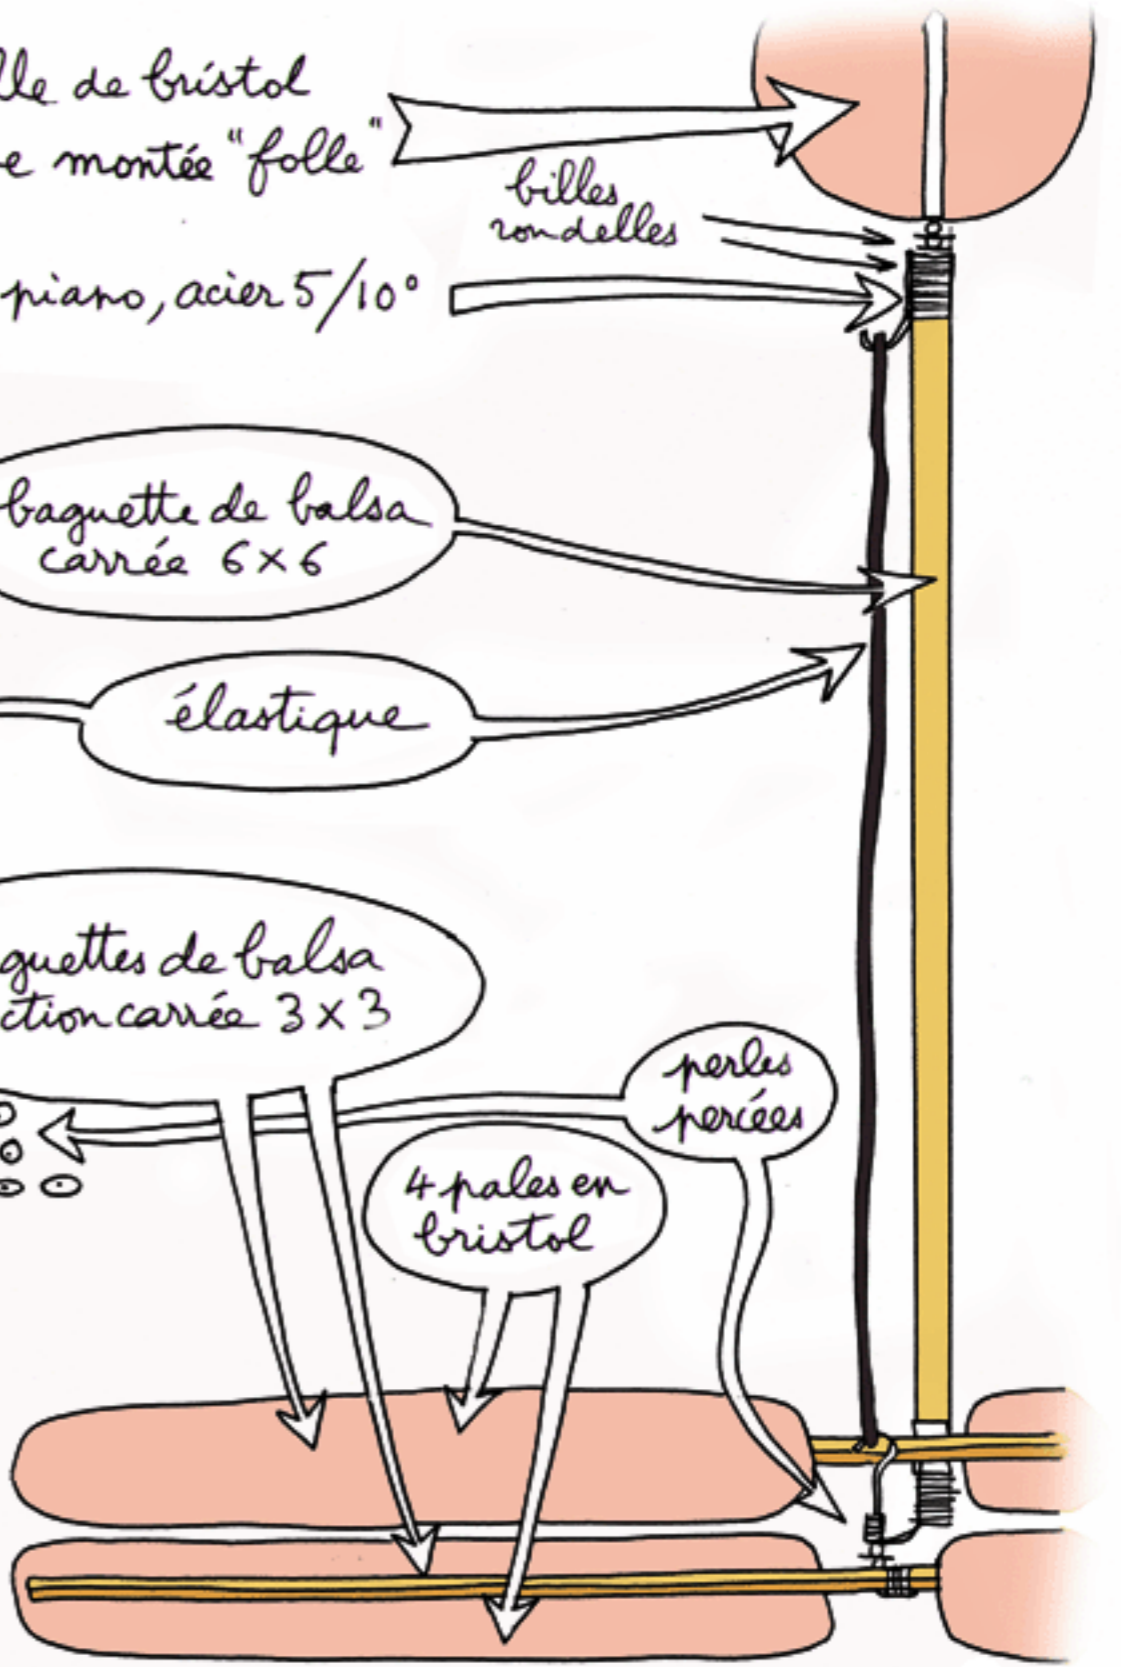 lle de bristol
e montée "folle"
billes
rondelles
piano, acier 5/10°
baguette de balsa
carrée 6×6
élastique
guettes de balsa
ction carrée 3×3
perles
percées
4 pales en
bristol